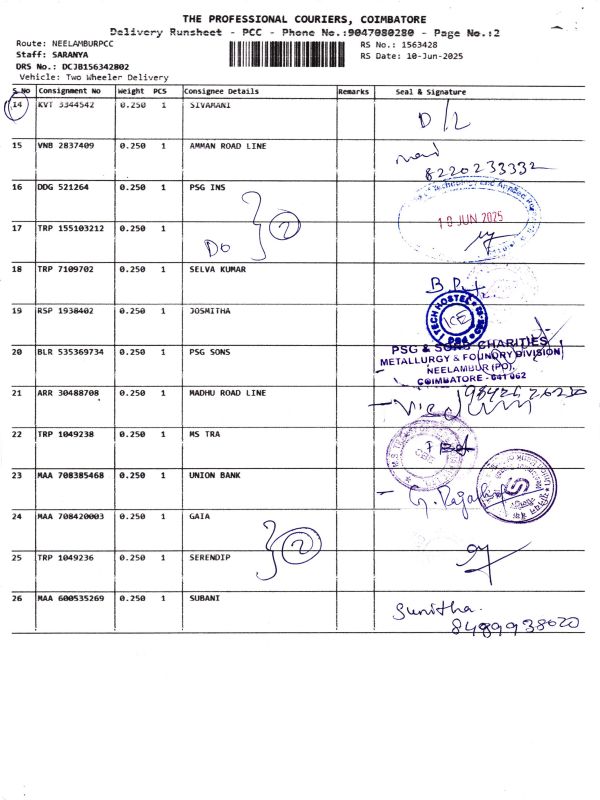 THE PROFESSIONAL COURIERS, COIMBATORE
Delivery Runsheet - PCC - Phone No.:9047080280 - Page No.:2
Route: NEELAMBURPCC
Staff: SARANYA
DRS No.: DCJB156342802
Vehicle: Two Wheeler Delivery
RS No.: 1563428
RS Date: 10-Jun-2025
S.No Consignment No Weight PCS Consignee Details Remarks Seal & Signature
14 KVT 3344542 0.250 1 SIVAMANI D/L
15 VNB 2837409 0.250 1 AMMAN ROAD LINE
8220233332
16 DDG 521264 0.250 1 PSG INS
10 JUN 2025
17 TRP 155103212 0.250 1 DO 2
18 TRP 7109702 0.250 1 SELVA KUMAR
19 RSP 1938402 0.250 1 JOSMITHA
I TECH HOSTEL
ICE
20 BLR 535369734 0.250 1 PSG SONS
PSG & SONS' CHARITIES
METALLURGY & FOUNDRY DIVISION
NEELAMBUR (PO),
COIMBATORE - 641 062
21 ARR 30488708 0.250 1 MADHU ROAD LINE
22 TRP 1049238 0.250 1 MS TRA
23 MAA 708385468 0.250 1 UNION BANK
24 MAA 708420003 0.250 1 GAIA 2
25 TRP 1049236 0.250 1 SERENDIP
26 MAA 600535269 0.250 1 SUBANI Sunitha.
8489938020